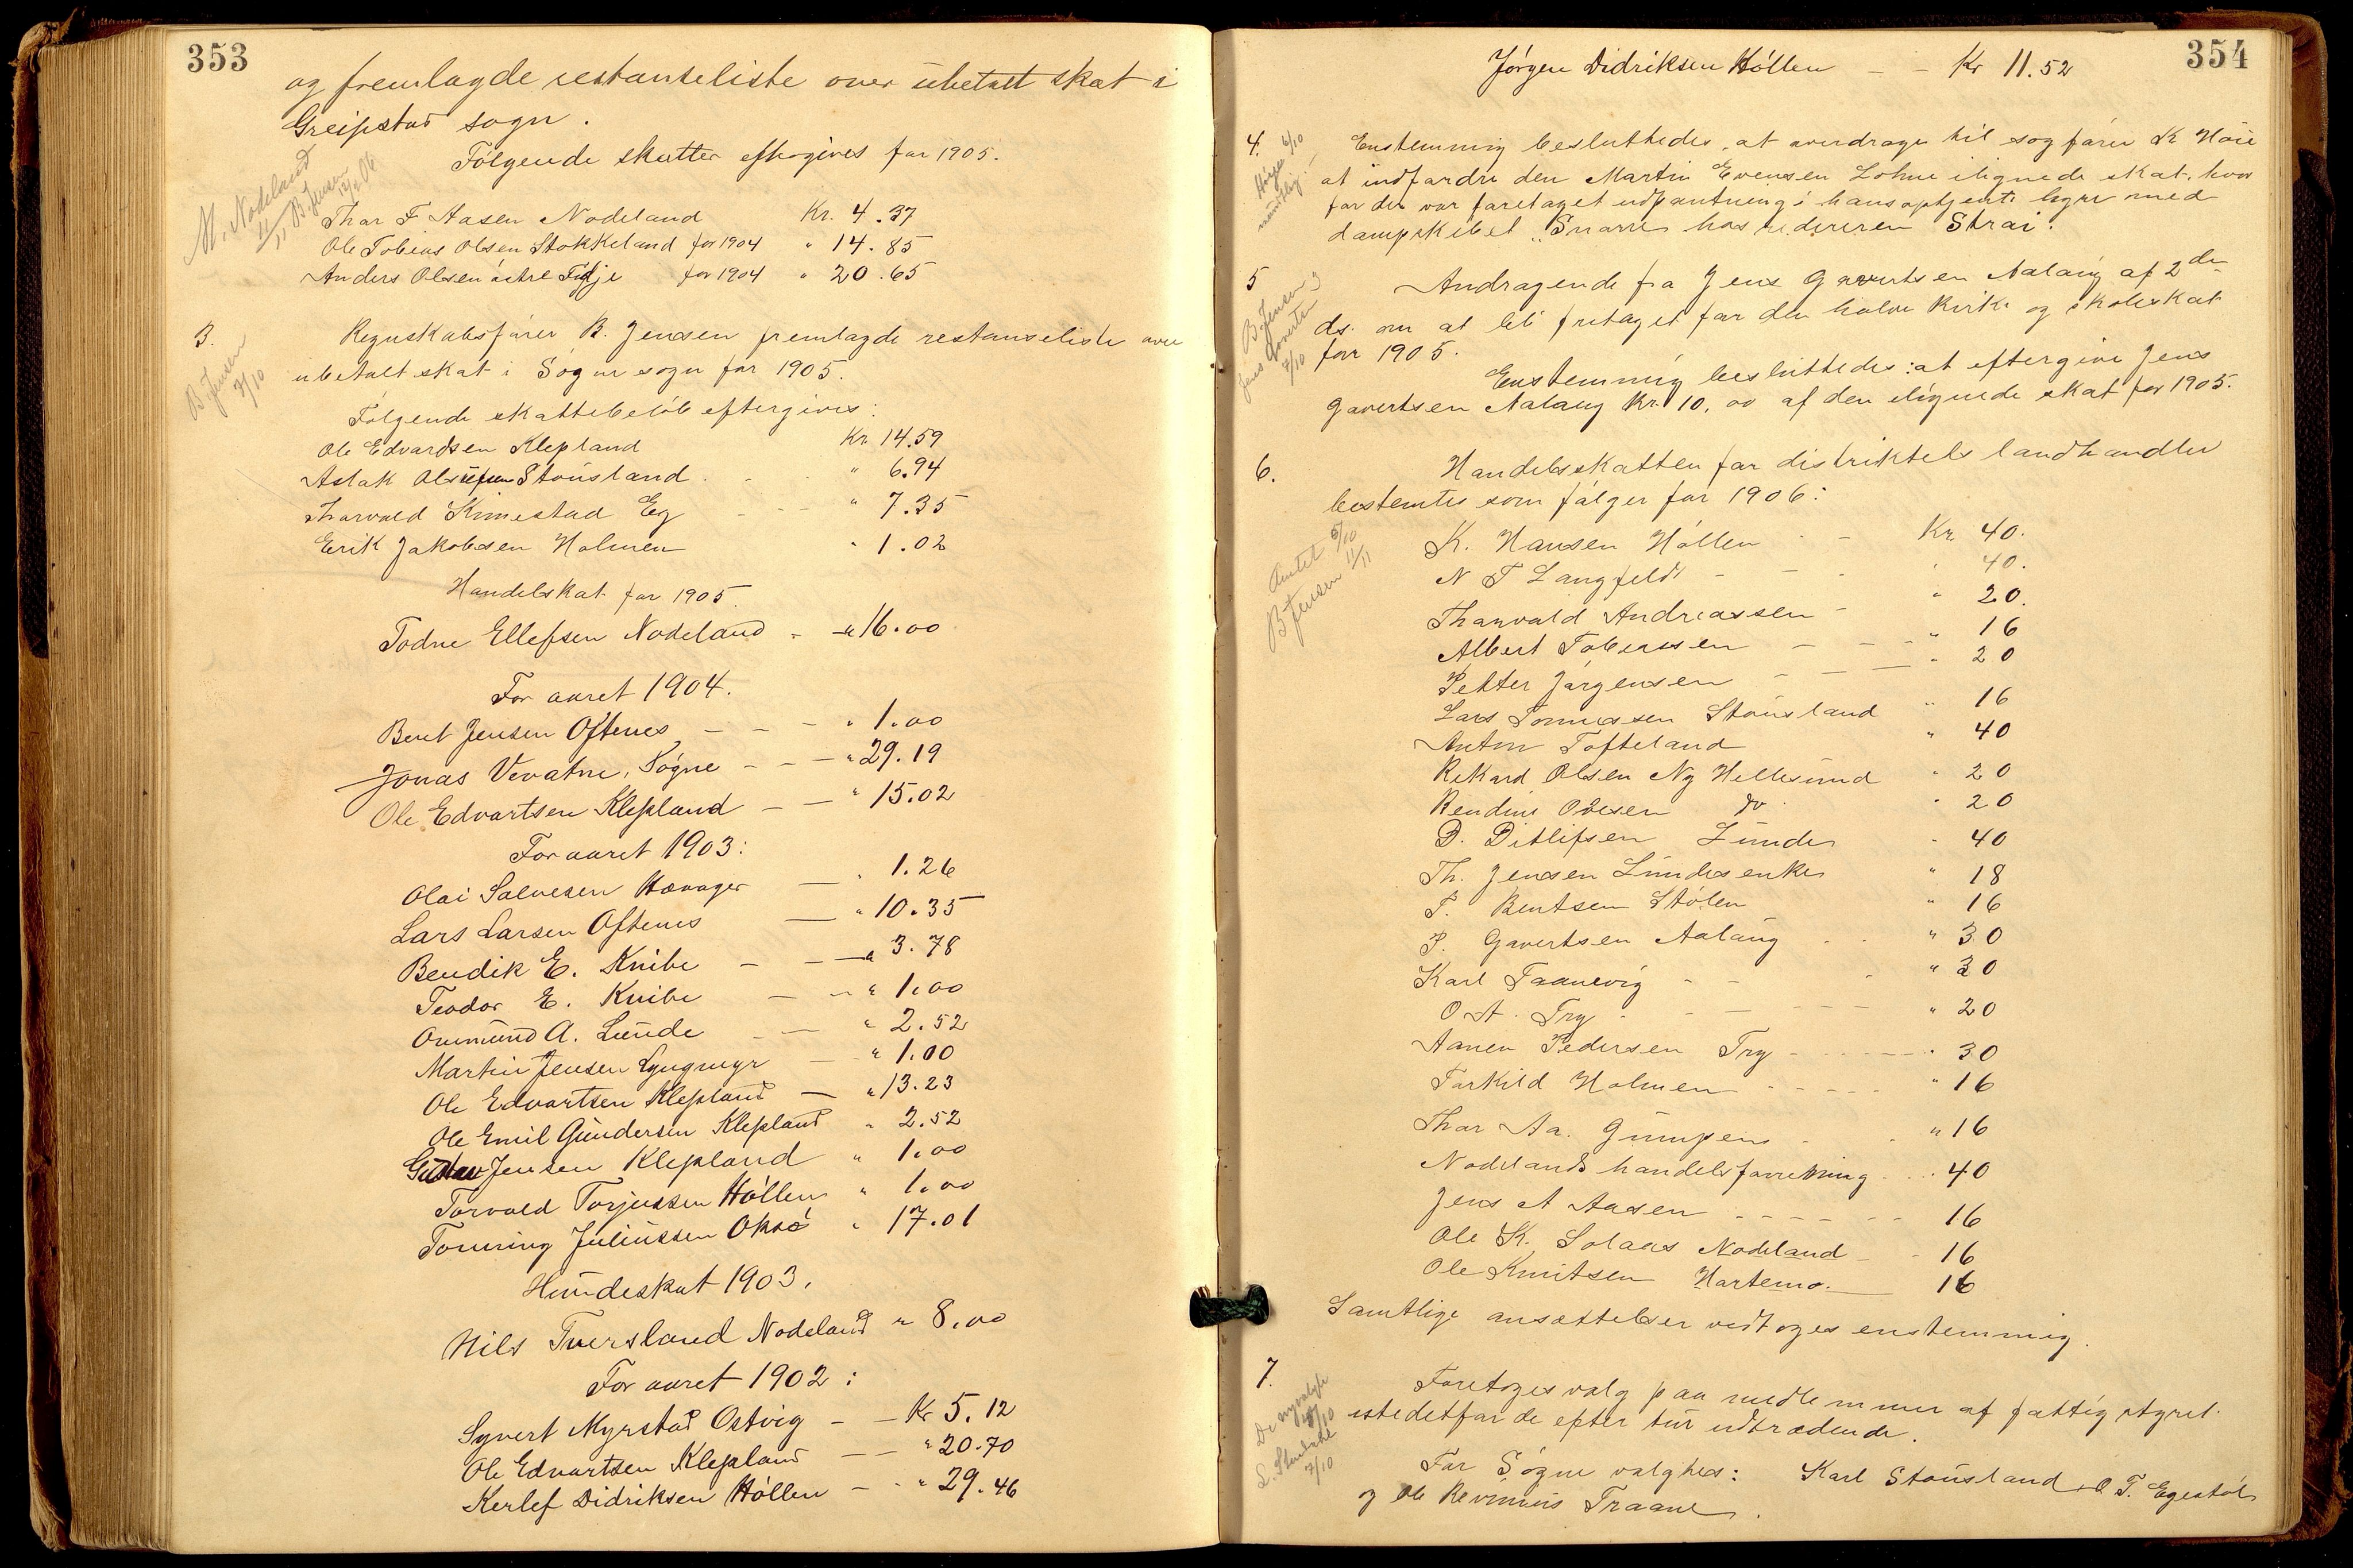 353
og fremlagde restanseliste over ubetalt skat i
Greipstad sogn.
Følgende skatter eftergives for 1905.
M. Nodeland
11/11 B Jensen
12/11 06
Thor F Aasen Nodeland Kr. 4.37
Ole Tobias Olsen Stokkeland for 1904 " 14.85
Anders Olsen østre Tofdje for 1904 " 20.65
3. Regnskabsfører B. Jensen fremlagde restanseliste over
B Jensen
7/10
ubetalt skat i Søgne sogn for 1905.
Følgende skattebeløb eftergives:
Ole Edvardsen Klepland Kr. 14.59
Aslak Stousland " 6.94
Thorvald Kimestad Eg " 7.35
Erik Jakobsen Holmen " 1.02
Handelskat for 1905.
Todne Ellefsen Nodeland - " 16.00
For aaret 1904.
Bent Jensen Oftenes - - - " 1.00
Jonas Vevatne, Søgne - - - " 29.19
Ole Edvartsen Klepland - - " 15.02
For aaret 1903:
Olai Salvesen Hævager - " 1.26
Lars Larsen Oftenes - " 10.35
Bendik E. Knibe - - - " 3.78
Teodor E. Knibe - - " 1.00
Ommund A. Lunde - - " 2.52
Martin Jensen Lyngmyr - " 1.00
Ole Edvartsen Klepland - " 13.23
Ole Emil Gundersen Klepland " 2.52
Gustav Jensen Klepland " 1.00
Torvald Torjussen Høllen " 1.00
Tønning Juliussen Oksø " 17.01
Hundeskat 1903.
Nils Tversland Nodeland " 8.00
For aaret 1902:
Syvert Myrstad Ostvig - - Kr 5.12
Ole Edvartsen Klepland - - " 20.70
Kerlef Didriksen Høllen - - " 29.46
354
Jørgen Didriksen Høllen - - Kr 11.52
4. Enstemmig besluttedes, at overdrage til sagfører K Høie
Høie 6/10
mundtlig!
at indfordre den Martin Evensen Lohne ilignede skat, hvor
for der var foretaget udpantning i hans optjente hyre med
dampskibet "Snarre" hos rederen Strai".
5 Andragende fra Jens Gavertsen Aalaug af 2den
B Jensen
Jens Gavertsen
7/10
ds. om at bli fritaget for den halve kirke og skoleskat
for 1905.
Enstemmig besluttedes: at eftergive Jens
Gavertsen Aalaug Kr. 10,00 af den ilignede skat for 1905.
6. Handelsskatten for distriktets landhandler
bestemtes som følger for 1906:
Amtet 5/10
B Jensen 11/11
K. Hansen Høllen - - Kr. 40.
N T Langfeldt - - - " 40.
Thorvald Andreassen - " 20.
Albert Tobiassen - - - " 16
Petter Jørgensen - - - " 20
Lars Tommassen Stousland " 16
Anton Tofteland " 40
Rikard Olsen Ny Hellesund " 20
Bendine Olsen do " 20
D. Ditlifsen Lunde " 40
Th. Jensen Lundes enke " 18
T. Bentsen Stølen " 16
P. Gavertsen Aalaug - - " 30
Karl Faanevig - - - " 30
O A. Try - - - - " 20
Aanen Pedersen Try - - - - " 30
Torkild Holmen - - - - - " 16
Thor Aa. Gumpens - - " 16
Nodelands handelsforretning - - - 40
Jens A Aasen - - - - - - 16
Ole K. Solaas Nodeland - - 16
Ole Knutsen Hortemo. - 16
Samtlige ansættelser vedtoges enstemmig.
7. Foretoges valg paa medlemmer af fattigstyret
De nyvalgte
5/10
7/10
istedetfor de efter tur udtrædende.
For Søgne valgtes: Karl Stousland, O T. Egestøl
og Ole Traane.